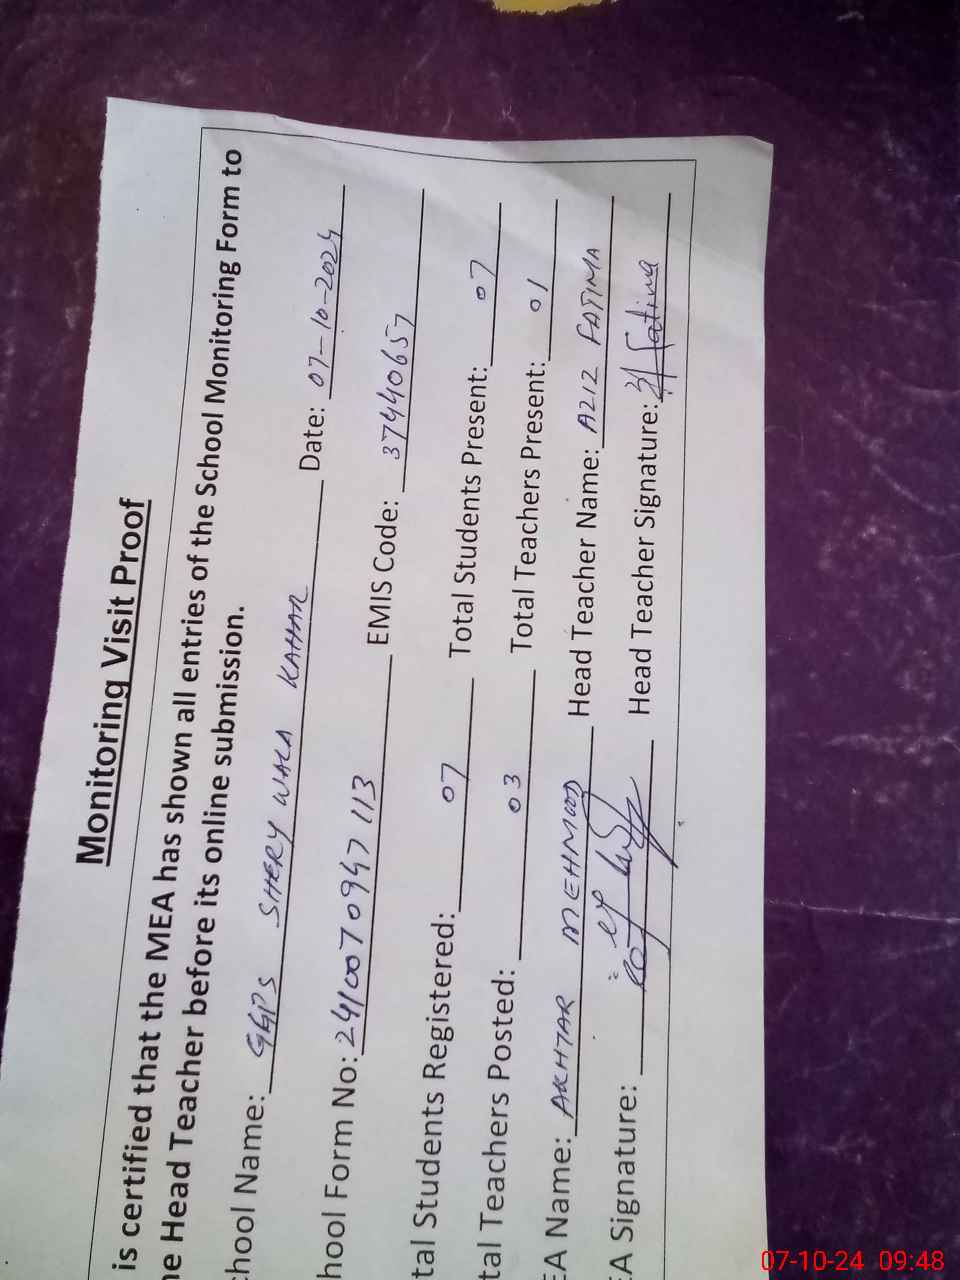 Monitoring Visit Proof
is certified that the MEA has shown all entries of the School Monitoring Form to
he Head Teacher before its online submission.
chool Name: GGPS SHERY WALA KAHAR Date: 07-10-2024
hool Form No: 2410070947113 EMIS Code: 37440657
tal Students Registered: 07 Total Students Present: 07
tal Teachers Posted: 03 Total Teachers Present: 01
EA Name: AKHTAR MEHMOOD Head Teacher Name: AZIZ FATIMA
EA Signature: Head Teacher Signature: Fatima
07-10-24 09:48